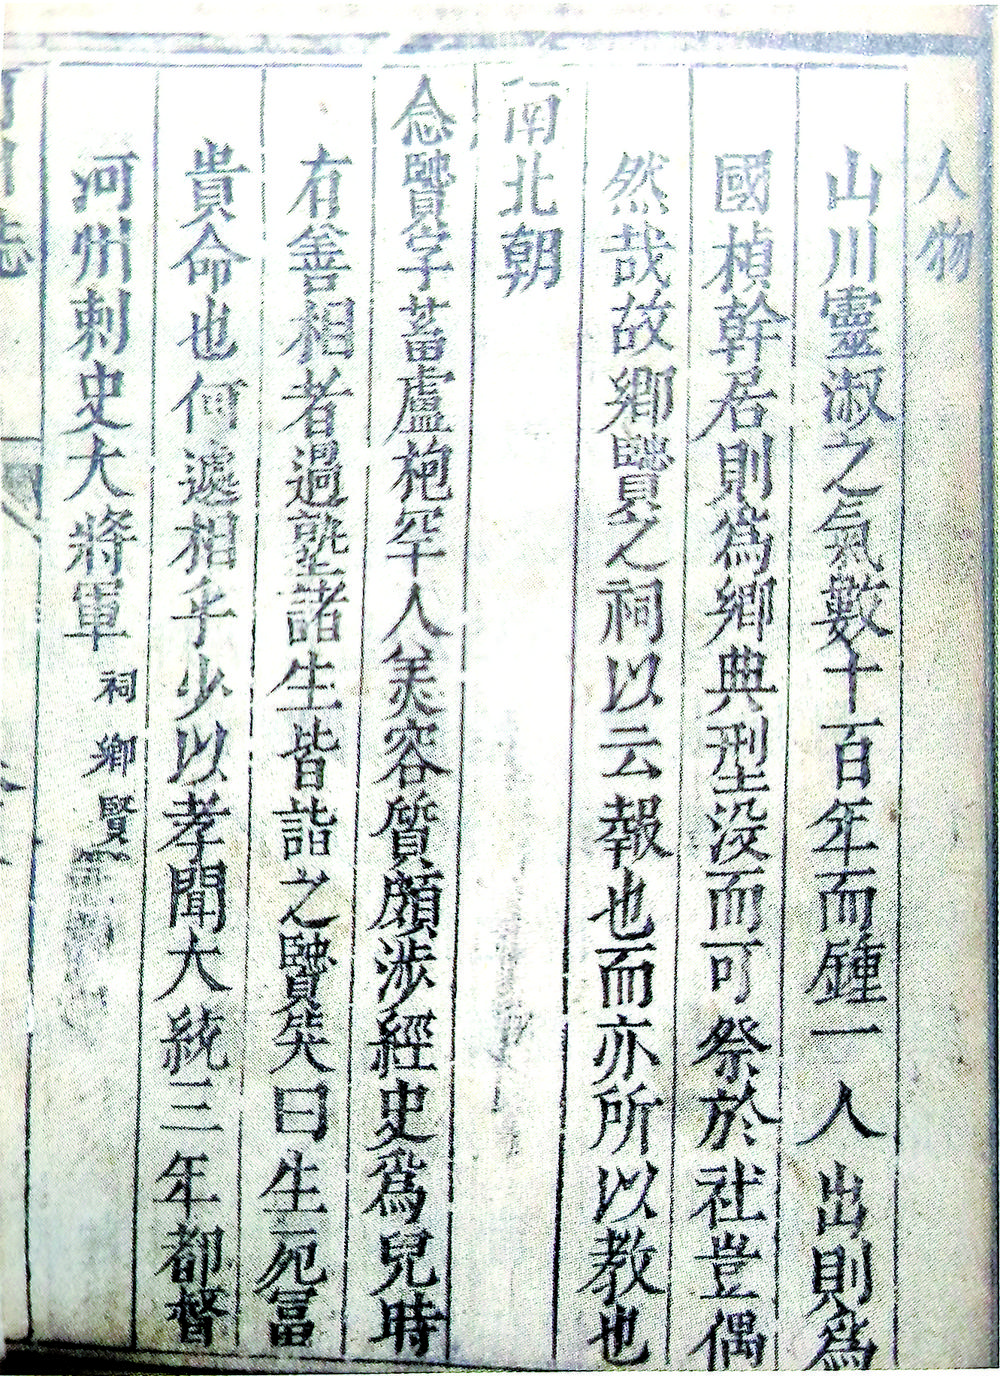 人物
山川靈淑之氣數十百年而鍾一人出則為
國楨幹居則為鄉典型没而可祭於社豈偶
然哉故鄉贒之祠以云報也而亦所以教也
南北朝
念贒字蓄盧枹罕人美容質頗涉經史爲兒時
有善相者過塾諸生皆詣之贒笑曰生死冨
貴命也何遽相乎少以孝聞大統三年都督
河州刺史大將軍祠鄉賢